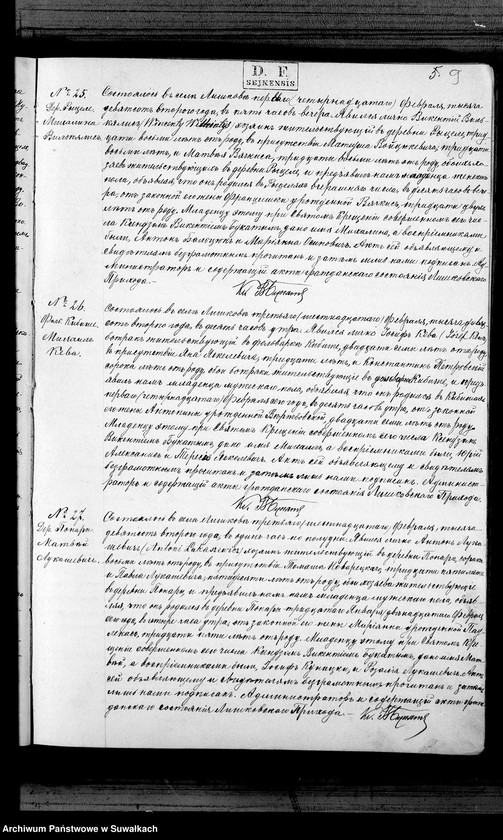 D. F.
SEJNENSIS
5. 9
№ 25.
Дер.
Михалина
Состоялось въ селѣ Лишковѣ первого /четырнадцатаго/ Февраля, тысяча
девятьсотъ второго года, въ пять часовъ вечера. Явился лично Викентій
/Wincenty/ хозяинъ жительствующій въ деревни
восьми лѣтъ отъ роду, въ присутствіи Матеуша Войцеховича, тридцати
восьми лѣтъ, и Матвѣя тридцати восьми лѣтъ отъ роду, обоихъ
жительствующихъ въ деревни и предъявилъ намъ младенца женскаго
пола, объявляя, что онъ родился въ вчерашняго числа, въ десять часовъ вече-
ра, отъ законной его жены Францишки урожденной тридцати двухъ
лѣтъ отъ роду. Младенцу этому при Святомъ Крещеніи совершенномъ сего чи-
сла Ксендзомъ Викентіемъ Букатымъ, дано имя Михалина, а воспріемниками
были, Антонъ и Маріанна Актъ сей объявляющему и
свидѣтелямъ неграмотнымъ прочитанъ и затѣмъ лишь нами подписанъ. Ад-
министраторъ и содержащій акты гражданскаго состоянія Лишковскаго
Прихода. —
Кс. В. Букаты
№ 26.
Фоль. Кибыше.
Михаилъ
Кева.
Состоялось въ селѣ Лишковѣ третьяго /шестнадцатаго/ Февраля, тысяча девять-
сотъ второго года, въ десять часовъ утра. Явился лично Іосифъ Кева /Józef
батракъ жительствующій въ фольваркѣ Кибыше, двадцати семи лѣтъ отъ роду,
въ присутствіи Яна тридцати лѣтъ, и Константина Петровскаго
сорока лѣтъ отъ роду, обоихъ батраковъ жительствующихъ въ Кибыше, и предъ-
явилъ намъ младенца мужескаго пола, объявляя, что онъ родился въ
перваго /четырнадцатаго/ Февраля сего года, въ десять часовъ утра, отъ законной
его жены Антонины урожденной двадцати семи лѣтъ отъ роду.
Младенцу этому при Святомъ Крещеніи совершенномъ сего числа Ксендзомъ
Викентіемъ Букатымъ, дано имя Михаилъ, а воспріемниками были, Юрій
и Актъ сей объявляющему и свидѣтелямъ
неграмотнымъ прочитанъ и затѣмъ лишь нами подписанъ. Админист-
раторъ и содержащій акты гражданскаго состоянія Лишковскаго Прихода.
Кс. В. Букаты
№ 27.
Дер. Нонары
Матвѣй
Лукашевичъ.
Состоялось въ селѣ Лишковѣ третьяго /шестнадцатаго/ Февраля, тысяча
девятьсотъ второго года, въ одинъ часъ по полудни. Явился лично Антонъ Лука-
шевичъ /Antoni Łukaszewicz/ хозяинъ жительствующій въ деревни Нонары, сорока
восьми лѣтъ отъ роду, въ присутствіи Томаша тридцати пяти лѣтъ
и Павла Лукашевича, пятидесяти лѣтъ отъ роду, обоихъ хозяевъ жительствующихъ
въ деревни Нонары и предъявилъ намъ младенца мужескаго пола, объяв-
ляя, что онъ родился въ деревни Нонары тридцатаго Января /двѣнадцатаго Февраля/
сего года, въ четыре часа утра, отъ законной его жены Маріанны урожденной
тридцати пяти лѣтъ отъ роду. Младенцу этому при Святомъ Кре-
щеніи совершенномъ сего числа Ксендзомъ Викентіемъ Букатымъ, дано имя Мат-
вѣй, а воспріемниками были, Іосифъ и Розалія Лукашевичъ. Актъ
сей объявляющему и свидѣтелямъ неграмотнымъ прочитанъ и затѣмъ
лишь нами подписанъ. Администраторъ и содержащій акты граж-
данскаго состоянія Лишковскаго Прихода. — Кс. В. Букаты
Archiwum Państwowe w Suwałkach